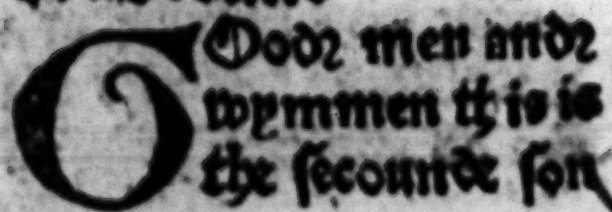 GOod men and
wymmen this is
the seconde son